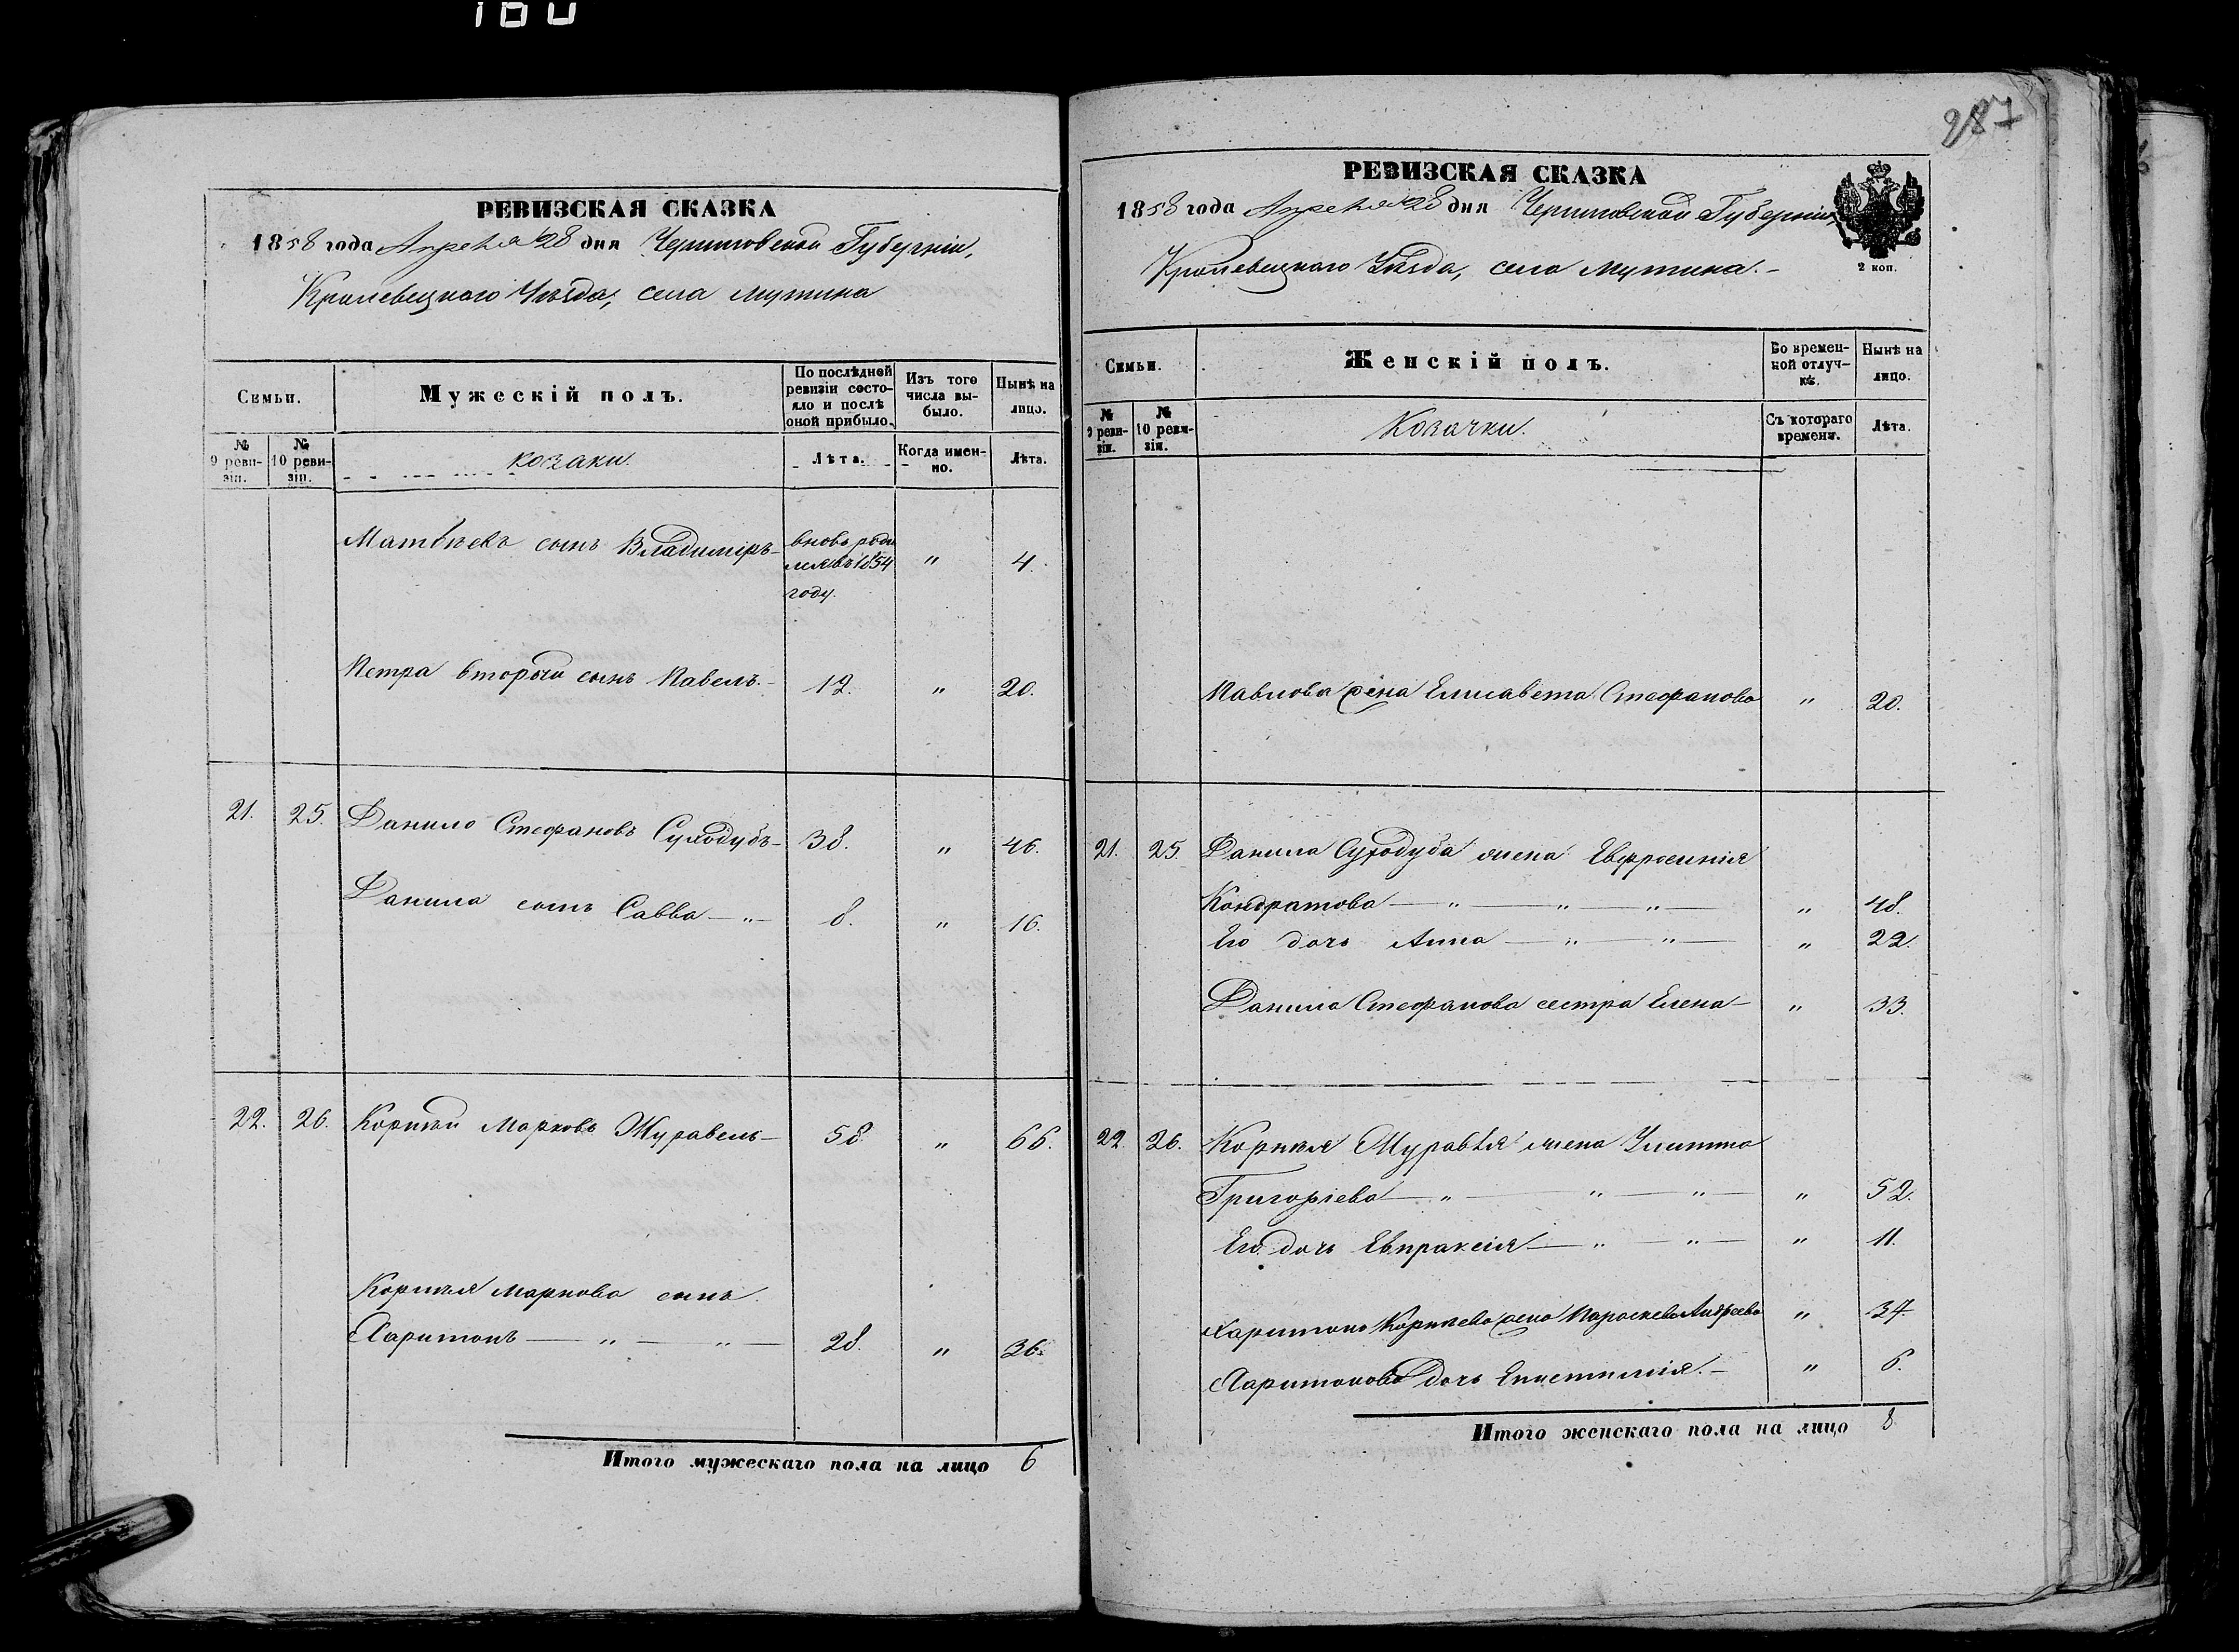 180
РЕВИЗСКАЯ СКАЗКА
1858 года Апреля 28 дня Черниговской Губерніи,
Кролевецкаго Уѣзда, села Мутина
Семьи.
Мужескій полъ.
По послѣдней ревизіи состояло и послѣ оной прибыло.
Изъ того числа выбыло.
Нынѣ на лицо.
№ 9 ревизіи.
№ 10 ревизіи.
козаки.
Лѣта.
Когда именно.
Лѣта.
Матвѣевъ сынъ Владиміръ- вновь родился въ 1854 году. " 4.
Петра второй сынъ Павелъ.- 12. " 20.
21. 25. Данило Стефановъ Суходубъ- 38. " 46.
Данила сынъ Савва —"— 8. " 16.
22. 26. Корнѣй Марковъ Журавель- 58. " 66.
Корнѣя Маркова сынъ
Харитонъ — " — " — 28. " 36.
Итого мужескаго пола на лицо 6
287
РЕВИЗСКАЯ СКАЗКА
1858 года Апреля 28 дня Черниговской Губерніи,
Кролевецкаго Уѣзда, села Мутина.-
2 коп.
Семьи.
Женскій полъ.
Во временной отлучкѣ.
Нынѣ на лицо.
№ 9 ревизіи.
№ 10 ревизіи.
Козачки.
Съ котораго времени.
Лѣта.
Павлова жена Елисавета Стефанова " 20.
21. 25. Данила Суходуба жена Евфросинія
Кондратова — " — " — " — " 48.
Его дочь Анна — " — " — " 22.
Данила Стефанова сестра Елена- " 33.
22. 26. Корнѣя Журавля жена Улитта
Григоріева — " — " — " — " 52.
Его дочь Евпраксія — " — " — " 11.
Харитона Корнѣева жена Параскева Андреева " 37
Харитонова дочь Епистимія.- " 6.
Итого женскаго пола на лицо 8